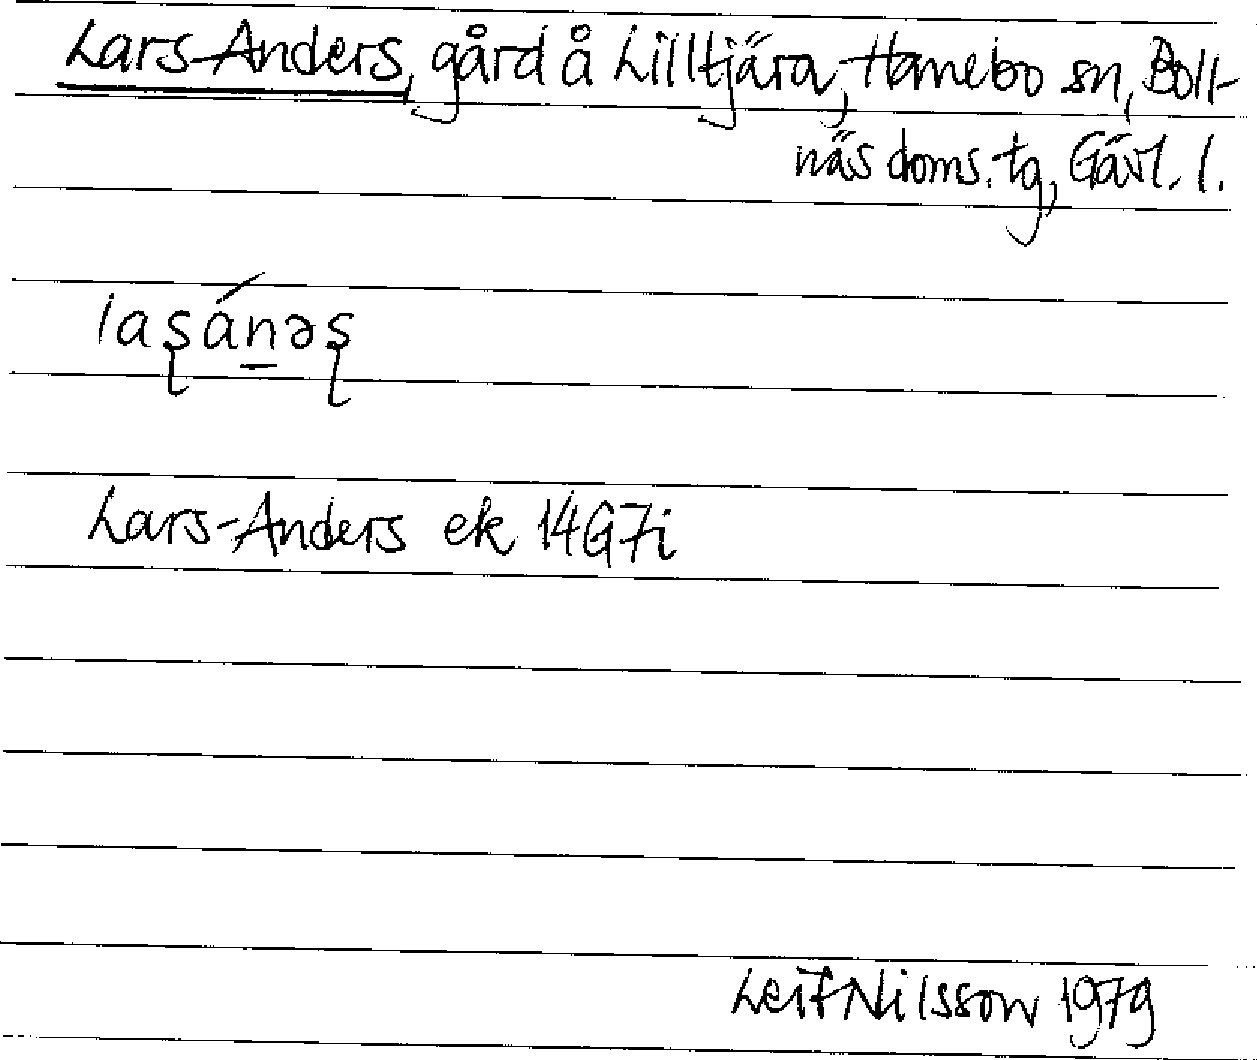 Lars-Anders, gård å Lilltjära, Hanebo sn, Boll-
näs doms. tg, Gävl. l.
laʂánəʂ
Lars-Anders ek 14G7i
Leif Nilsson 1979